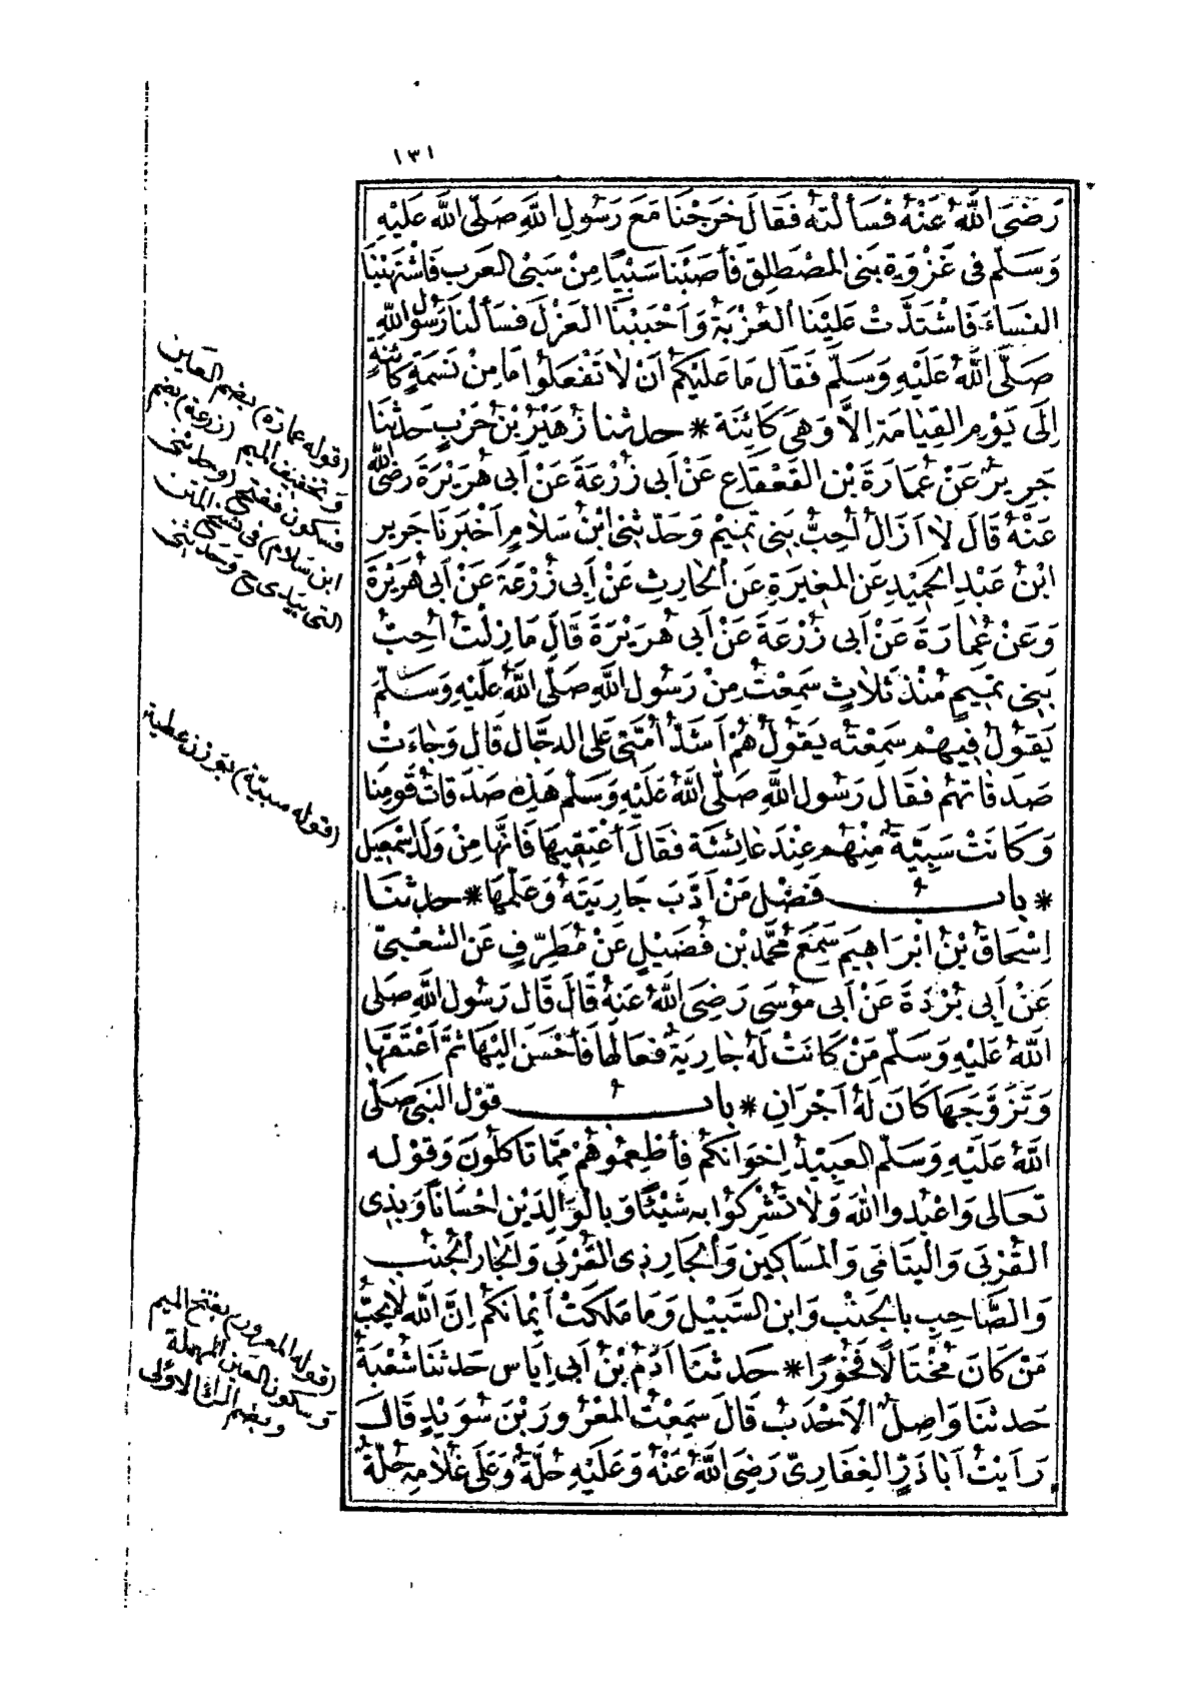 ١٣١
رَضِىَ اللَّهُ عَنْهُ فَسَأَلْتُهُ فَقَالَ خَرَجْنَا مَعَ رَسُولِ اللَّهِ صَلَّى اللَّهُ عَلَيْهِ
وَسَلَّمَ فِى غَزْوَةِ بَنِى المُصْطَلِقِ فَأَصَبْنَا سَبْيًا مِنْ سَبْىِ العَرَبِ فَاشْتَهَيْنَا
النِّسَاءَ فَاشْتَدَّتْ عَلَيْنَا العُزْبَةُ وَأَحْبَبْنَا العَزْلَ فَسَأَلْنَا رَسُولَ اللَّهِ
صَلَّى اللَّهُ عَلَيْهِ وَسَلَّمَ فَقَالَ مَا عَلَيْكُمْ أَنْ لَا تَفْعَلُوا مَا مِنْ نَسَمَةٍ كَائِنَةٍ
إِلَى يَوْمِ القِيَامَةِ إِلَّا وَهِىَ كَائِنَةٌ * حدثنا زُهَيْرُ بْنُ حَرْبٍ حَدَّثَنَا
جَرِيرٌ عَنْ عُمَارَةَ بْنِ القَعْقَاعِ عَنْ أَبِى زُرْعَةَ عَنْ أَبِى هُرَيْرَةَ رَضِىَ اللَّهُ
عَنْهُ قَالَ لَا أَزَالُ أُحِبُّ بَنِى تَمِيمٍ وَحَدَّثَنِى ابْنُ سَلَامٍ أَخْبَرَنَا جَرِيرُ
ابْنُ عَبْدِ الحَمِيدِ عَنِ المُغِيرَةِ عَنِ الحَارِثِ عَنْ أَبِى زُرْعَةَ عَنْ أَبِى هُرَيْرَةَ
وَعَنْ عُمَارَةَ عَنْ أَبِى زُرْعَةَ عَنْ أَبِى هُرَيْرَةَ قَالَ مَا زِلْتُ أُحِبُّ
بَنِى تَمِيمٍ مُنْذُ ثَلَاثٍ سَمِعْتُ مِنْ رَسُولِ اللَّهِ صَلَّى اللَّهُ عَلَيْهِ وَسَلَّمَ
يَقُولُ فِيهِمْ سَمِعْتُهُ يَقُولُ هُمْ أَشَدُّ أُمَّتِى عَلَى الدَّجَّالِ قَالَ وَجَاءَتْ
صَدَقَاتُهُمْ فَقَالَ رَسُولُ اللَّهِ صَلَّى اللَّهُ عَلَيْهِ وَسَلَّمَ هَذِهِ صَدَقَاتُ قَوْمِنَا
وَكَانَتْ سَبِيَّةٌ مِنْهُمْ عِنْدَ عَائِشَةَ فَقَالَ أَعْتِقِيهَا فَإِنَّهَا مِنْ وَلَدِ إِسْمَعِيلَ
* باب فَضْلِ مَنْ أَدَّبَ جَارِيَتَهُ وَعَلَّمَهَا * حدثنا
إِسْحَاقُ بْنُ إِبْرَاهِيمَ سَمِعَ مُحَمَّدَ بْنَ فُضَيْلٍ عَنْ مُطَرِّفٍ عَنِ الشَّعْبِىِّ
عَنْ أَبِى بُرْدَةَ عَنْ أَبِى مُوسَى رَضِىَ اللَّهُ عَنْهُ قَالَ قَالَ رَسُولُ اللَّهِ صَلَّى
اللَّهُ عَلَيْهِ وَسَلَّمَ مَنْ كَانَتْ لَهُ جَارِيَةٌ فَعَالَهَا فَأَحْسَنَ إِلَيْهَا ثُمَّ أَعْتَقَهَا
وَتَزَوَّجَهَا كَانَ لَهُ أَجْرَانِ * باب قَوْلِ النَّبِىِّ صَلَّى
اللَّهُ عَلَيْهِ وَسَلَّمَ العَبِيدُ إِخْوَانُكُمْ فَأَطْعِمُوهُمْ مِمَّا تَأْكُلُونَ وَقَوْلِهِ
تَعَالَى وَاعْبُدُوا اللَّهَ وَلَا تُشْرِكُوا بِهِ شَيْئًا وَبِالْوَالِدَيْنِ إِحْسَانًا وَبِذِى
القُرْبَى وَاليَتَامَى وَالمَسَاكِينِ وَالجَارِ ذِى القُرْبَى وَالجَارِ الجُنُبِ
وَالصَّاحِبِ بِالجَنْبِ وَابْنِ السَّبِيلِ وَمَا مَلَكَتْ أَيْمَانُكُمْ إِنَّ اللَّهَ لَا يُحِبُّ
مَنْ كَانَ مُخْتَالًا فَخُورًا * حَدَّثَنَا آدَمُ بْنُ أَبِى إِيَاسٍ حَدَّثَنَا شُعْبَةُ
حَدَّثَنَا وَاصِلٌ الأَحْدَبُ قَالَ سَمِعْتُ المَعْرُورَ بْنَ سُوَيْدٍ قَالَ
رَأَيْتُ أَبَا ذَرٍّ الغِفَارِىَّ رَضِىَ اللَّهُ عَنْهُ وَعَلَيْهِ حُلَّةٌ وَعَلَى غُلَامِهِ حُلَّةٌ
(قوله عمارة) بضم العين
وتخفيف الميم (زرعة) بضم
فسكون ففتح (وحدثنى
ابن سلام) فى نسخ المتن
التى بيدى ح وحدثنى
(قوله سبيّة) بوزن عطية
(قوله المعرور) بفتح الميم
وسكون العين المهملة
وبضم الراء الأولى